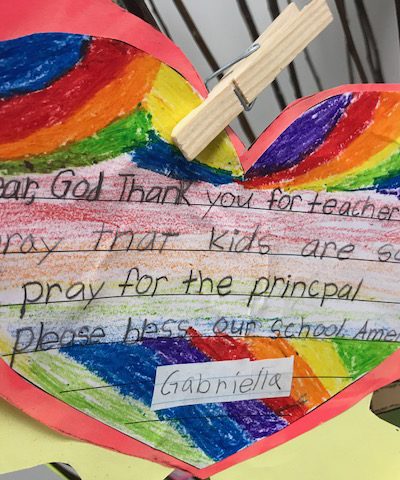 ear, God Thank you for teacher
ray that kids are sa
pray for the princpal
please bless our school Ame
Gabriella